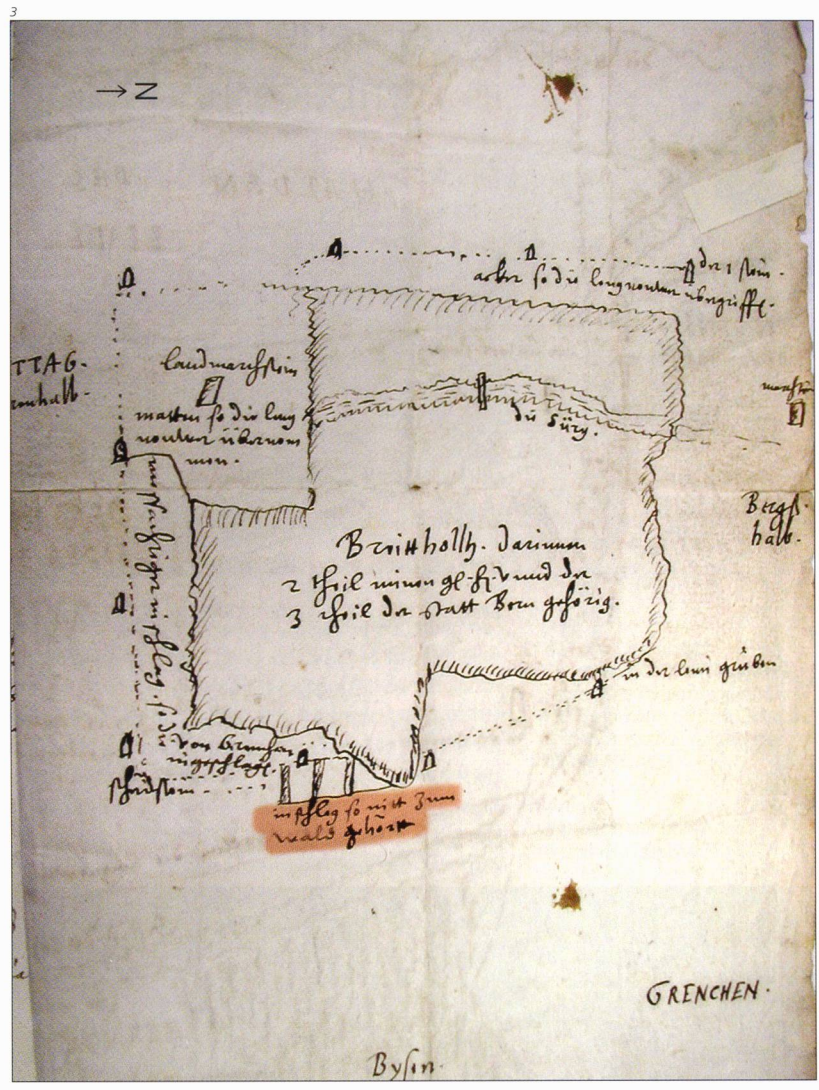 3
→ N
der 1 stein.
acker so die lengnouwer übergriffe.
TTAG.
enhalb.
landmarchstein
matten so die leng
nouwer übernom
men.
die Sürg.
Bergs.
halb.
Breitthollz. darinnen
2 theil minen gl. H. v und der
3 theil der statt Bern gehörig.
in der leim gruben
inschlag. so die
von Grenchen
ingeschlage.
scheidstein.
inschlag so nitt zum
wald gehört
GRENCHEN.
Bysin.